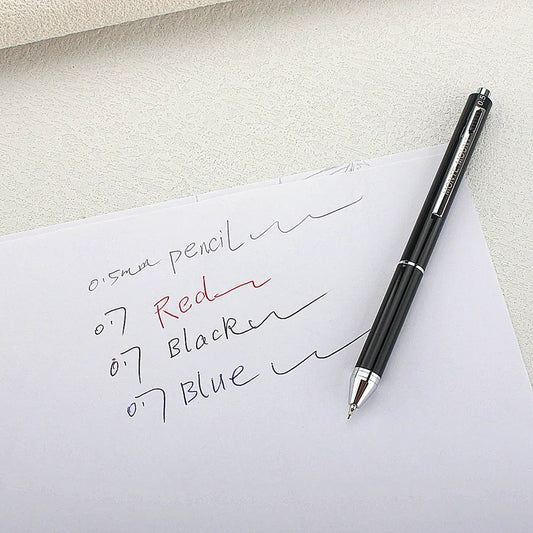 0.5mm pencil
0.7 Red
0.7 Black
0.7 Blue
0.5